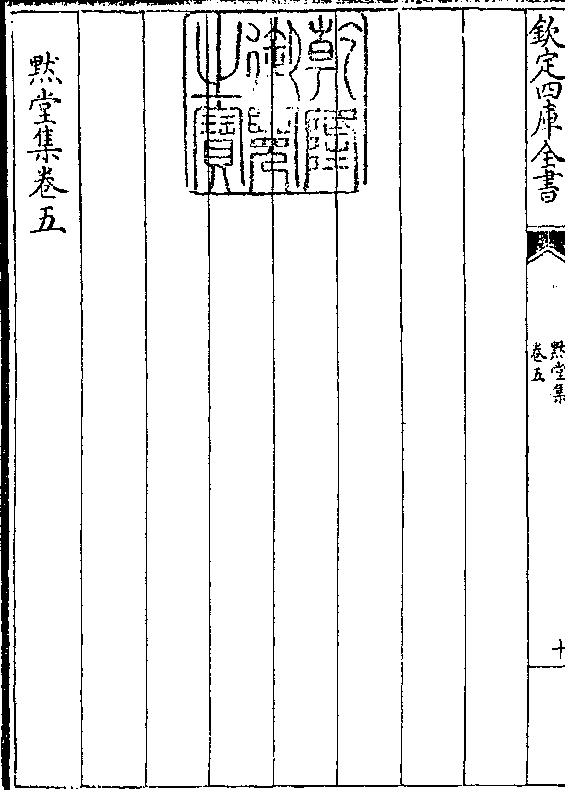 欽定四庫全書
黙堂集
卷五
十
乾隆
御覽
之寶
黙堂集卷五